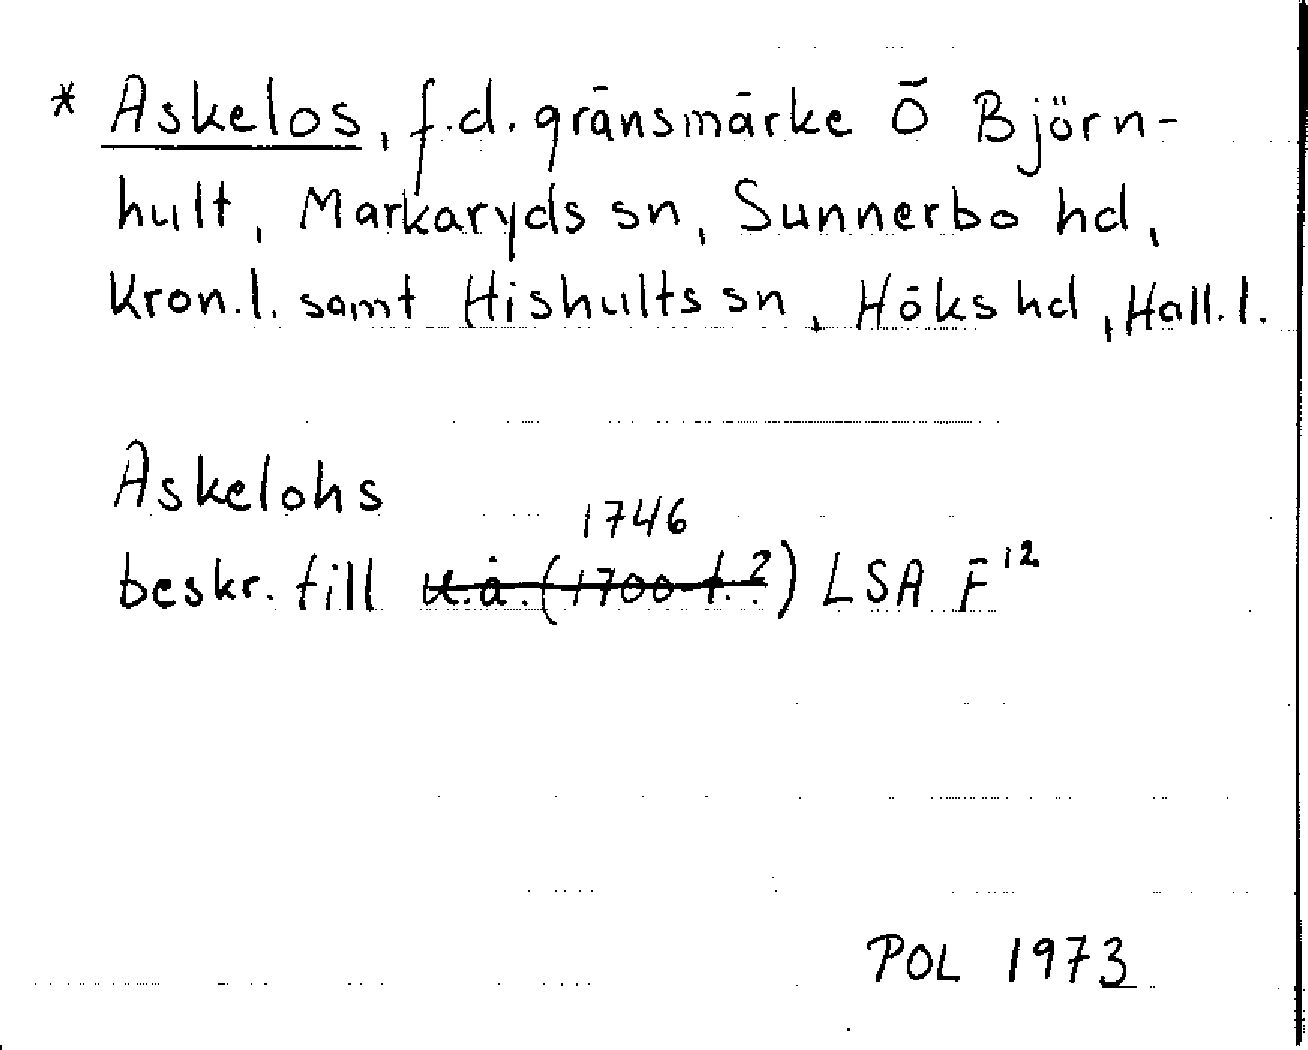 * Askelos, f.d. gränsmärke Ö Björn-
hult, Markaryds sn, Sunnerbo hd,
Kron.l. samt Hishults sn, Höks hd, Hall.l.
Askelohs
1746
beskr. till u.å. (1700-t.?) LSA F 12
POL 1973